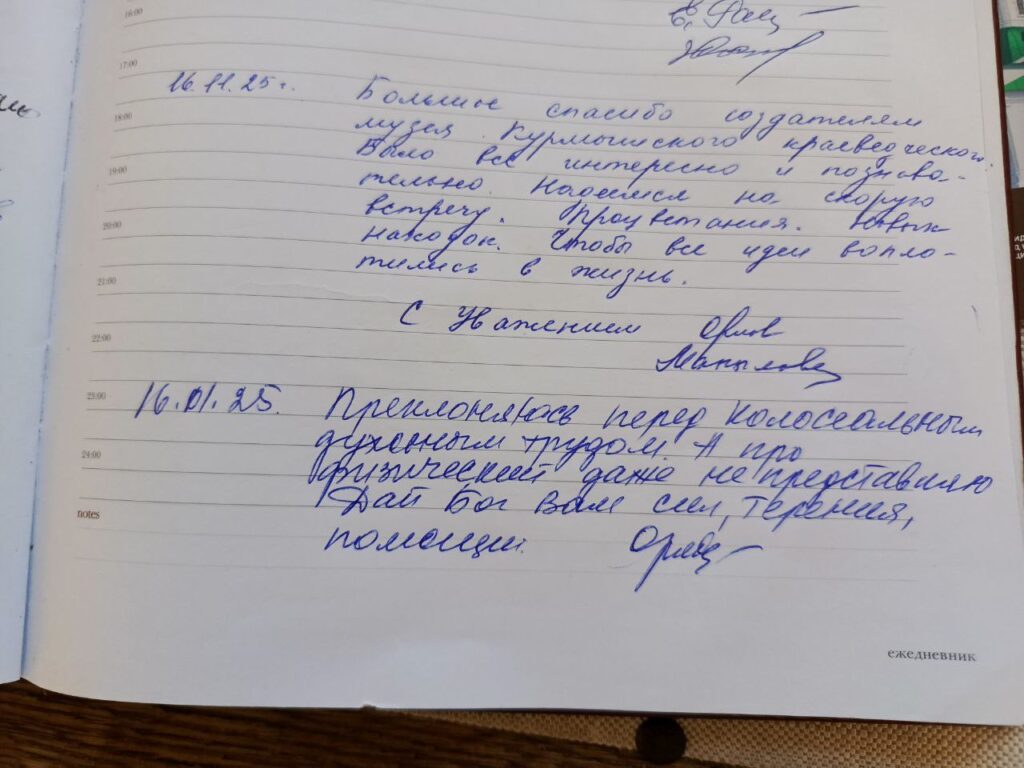 16:00
17:00
16.11.25г.
Большое спасибо создателям
18:00
музея Курмышского краеведческого.
Было все интересно и познова-
19:00
тельно. Надеемся на скорую
встречу. Процветания. Новых
20:00
находок. Чтобы все идеи вопло-
тились в жизнь.
21:00
С Уважением Орлов
22:00
16.01.25. Преклоняюсь перед колоссальным
23:00
духовным трудом. А про
физический даже не представляю
24:00
Дай Бог Вам сил, терпения,
notes
помощи.
ежедневник